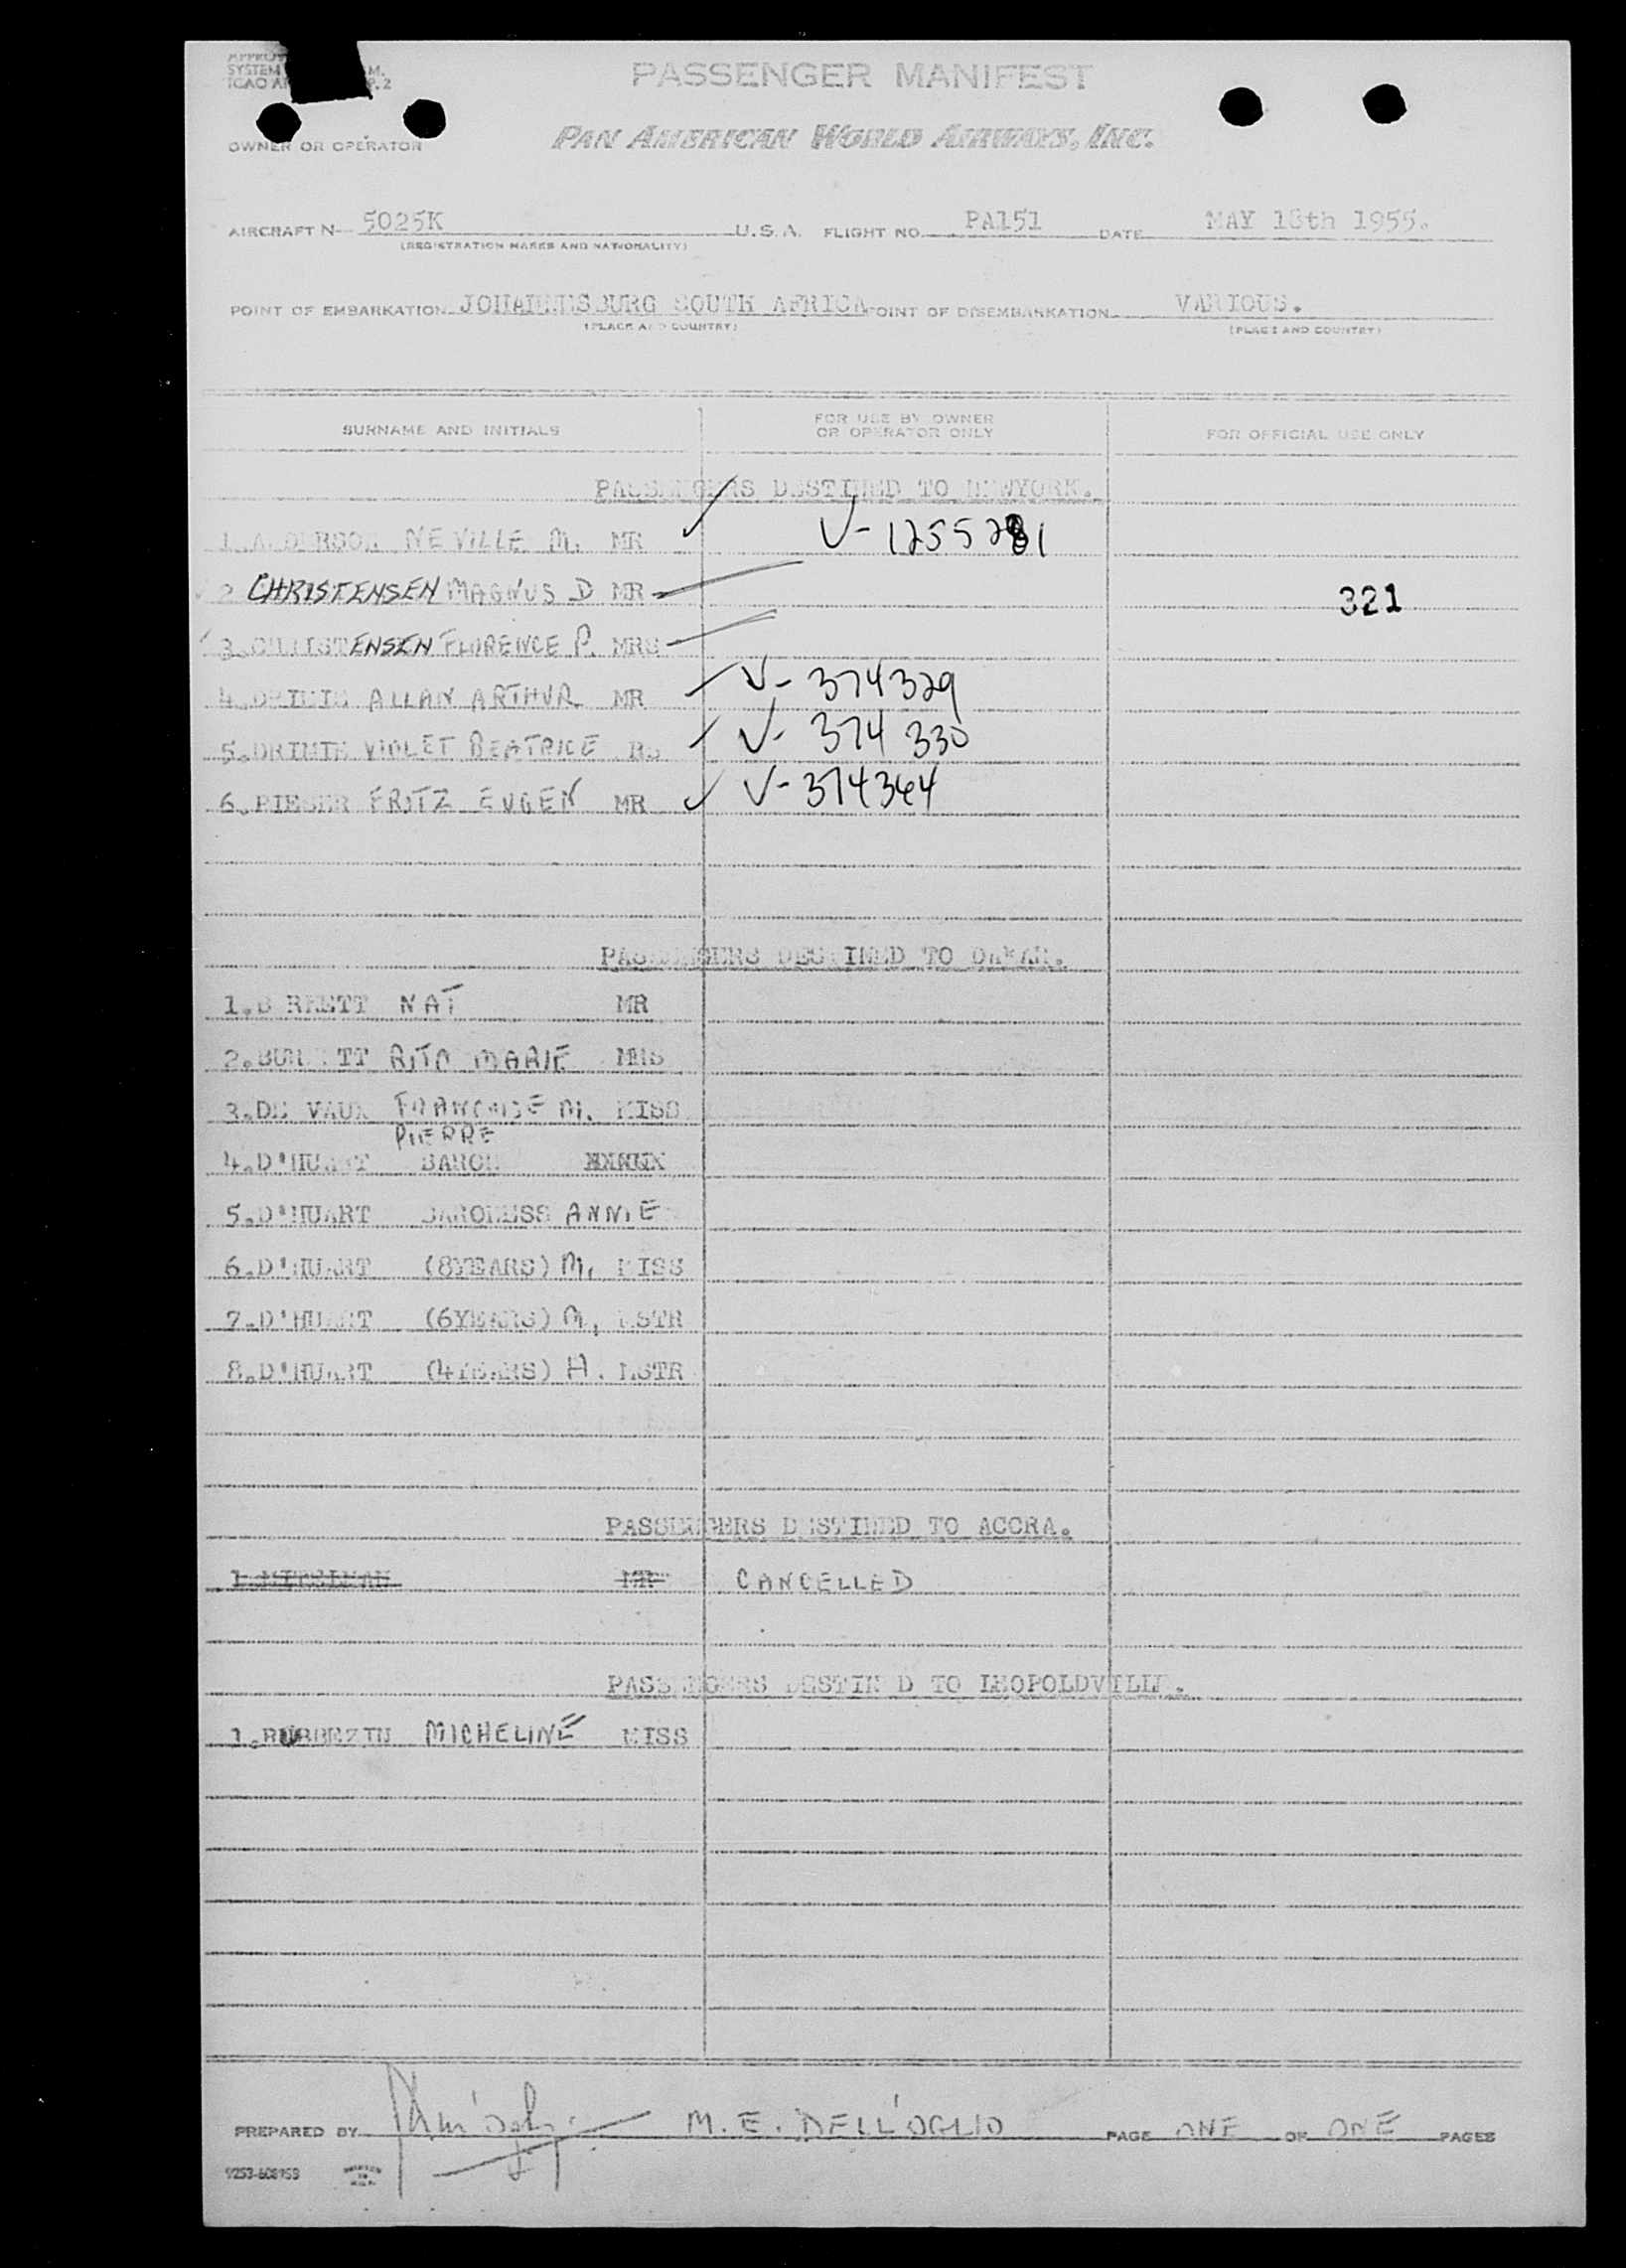 SYSTEM
PASSENGER MANIFEST
OWNER OR OPERATOR PAN AMERICAN WORLD AIRWAYS, INC.
AIRCRAFT N- 5025K U.S.A. FLIGHT NO. PA151 DATE MAY 18th 1955.
(REGISTRATION MARKS AND NATIONALITY)
POINT OF EMBARKATION JOHANNESBURG SOUTH AFRICA POINT OF DISEMBARKATION VARIOUS.
(PLACE AND COUNTRY) (PLACE AND COUNTRY)
SURNAME AND INITIALS FOR USE BY OWNER OR OPERATOR ONLY FOR OFFICIAL USE ONLY
PASSENGERS DESTINED TO NEWYORK.
1.ANDERSON NEVILLE M. MR V-1255281
2 CHRISTENSEN MAGNUS D MR 321
3.CHRISTENSEN FLORENCE P. MRS
4. ALLAN ARTHUR MR V-374329
5. VIOLET BEATRICE V-374330
6. FRITZ EUGEN MR V-374364
PASSENGERS DESTINED TO DAKAR.
1. NAT MR
2. RITA MARIE MRS
3.DE VAUX FRANCOISE M. MISS
PIERRE
4.D'HUART BARON
5.D'HUART BARONESS ANNIE
6.D'HUART (8YEARS) M. MISS
7.D'HUART (6YEARS) M. MSTR
8.D'HUART (4YEARS) H. MSTR
PASSENGERS DESTINED TO ACCRA.
1. MR CANCELLED
PASSENGERS DESTINED TO LEOPOLDVILLE.
1. MICHELINE MISS
PREPARED BY M. E. DELL'OGLIO PAGE ONE OF ONE PAGES